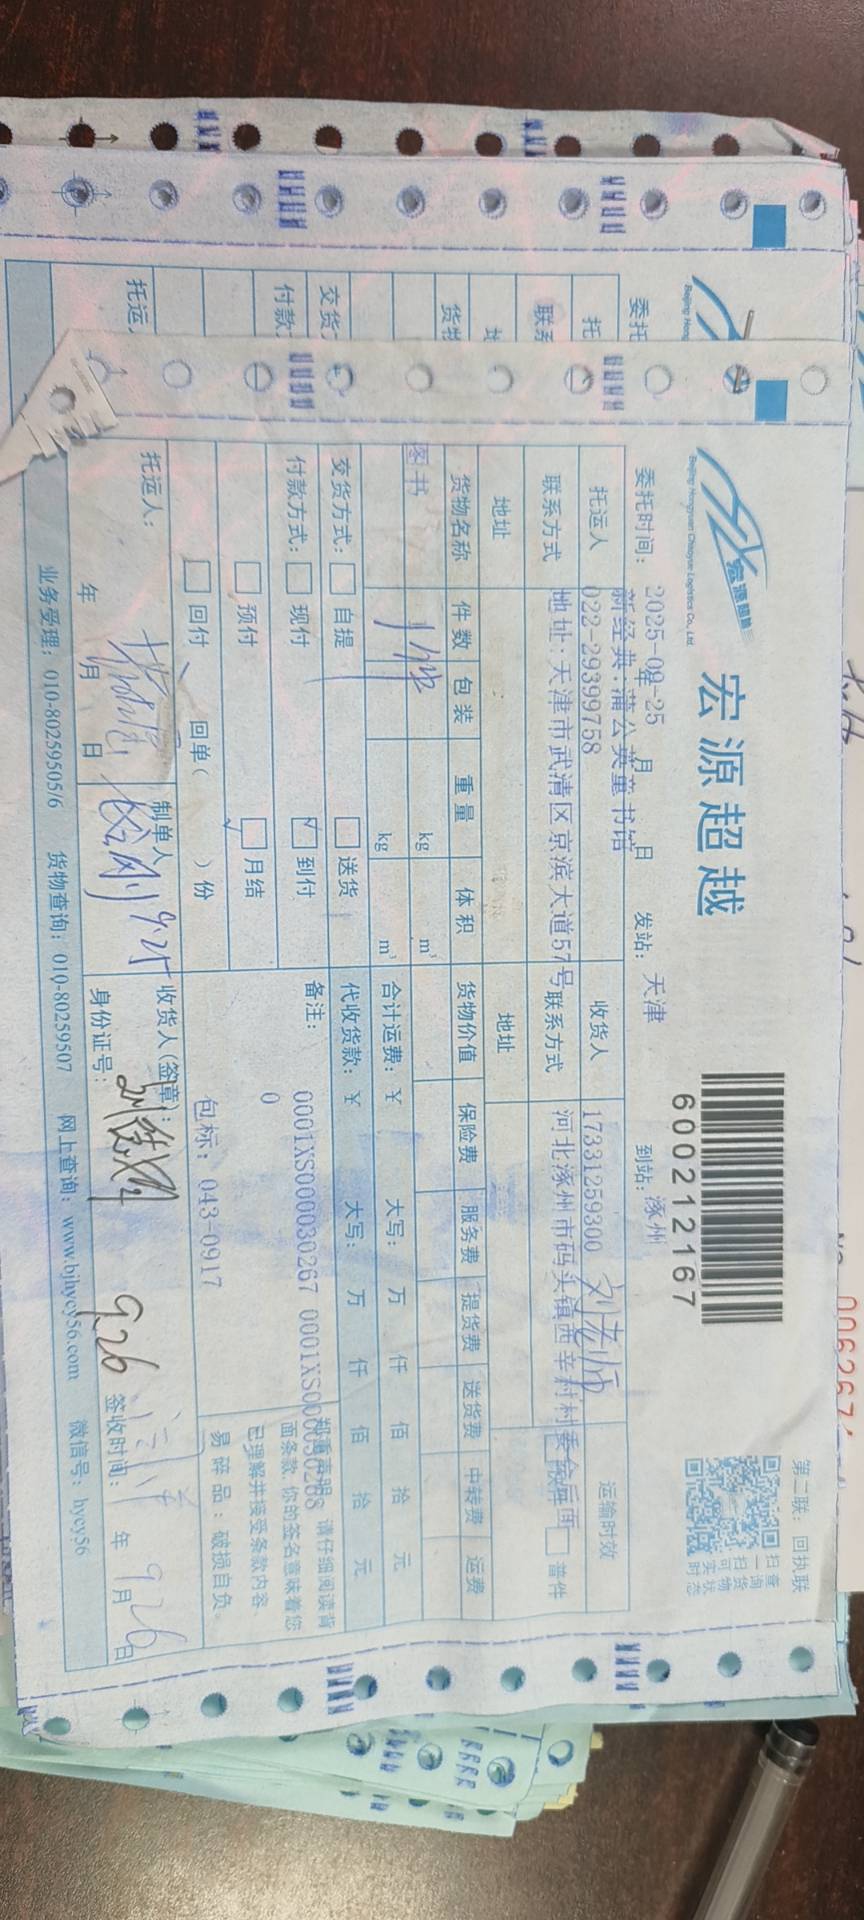 宏源超越
宏源超越
Beijing Hongyuan Chaoyue Logistics Co., Ltd.
60021216​7
第二联：回执联
扫一扫
查询货物
可实时状态
委托时间：2025-09-25 年 月 日 发站：天津 到站：涿州
托运人 新经典：蒲公英童书馆
022-29399758
收货人 17331259300 刘老师
运输时效
联系方式 地址：天津市武清区京滨大道57号
联系方式 河北涿州市码头镇西辛村村委会后面
普件
地址 地址
货物名称 件数 包装 重量 体积 货物价值 保险费 服务费 提货费 送货费 中转费 运费
图书 1件 kg m³
1 kg m³
合计运费：￥ 大写： 万 仟 佰 拾 元
交货方式： 自提 送货
代收货款：￥ 大写： 万 仟 佰 拾 元
付款方式： 现付 到付
预付 月结
回付 回单（ ）份
备注：
0001XS0000030267 0001XS0000030268
0
包标：043-0917
郑重声明：请仔细阅读背
面条款，你的签名意味着您
已理解并接受条款内容。
易碎品：破损自负。
托运人： 年 月 日
制单人 9.25
收货人(签章)：
身份证号：
9.26
签收时间： 年 月 日
9 26
业务受理：010-80259505/6 货物查询：010-80259507 网上查询：www.bjhycy56.com 微信号：hycy56
委托
托
联系
地
货物
交货
付款
托运人
Beijing Hong